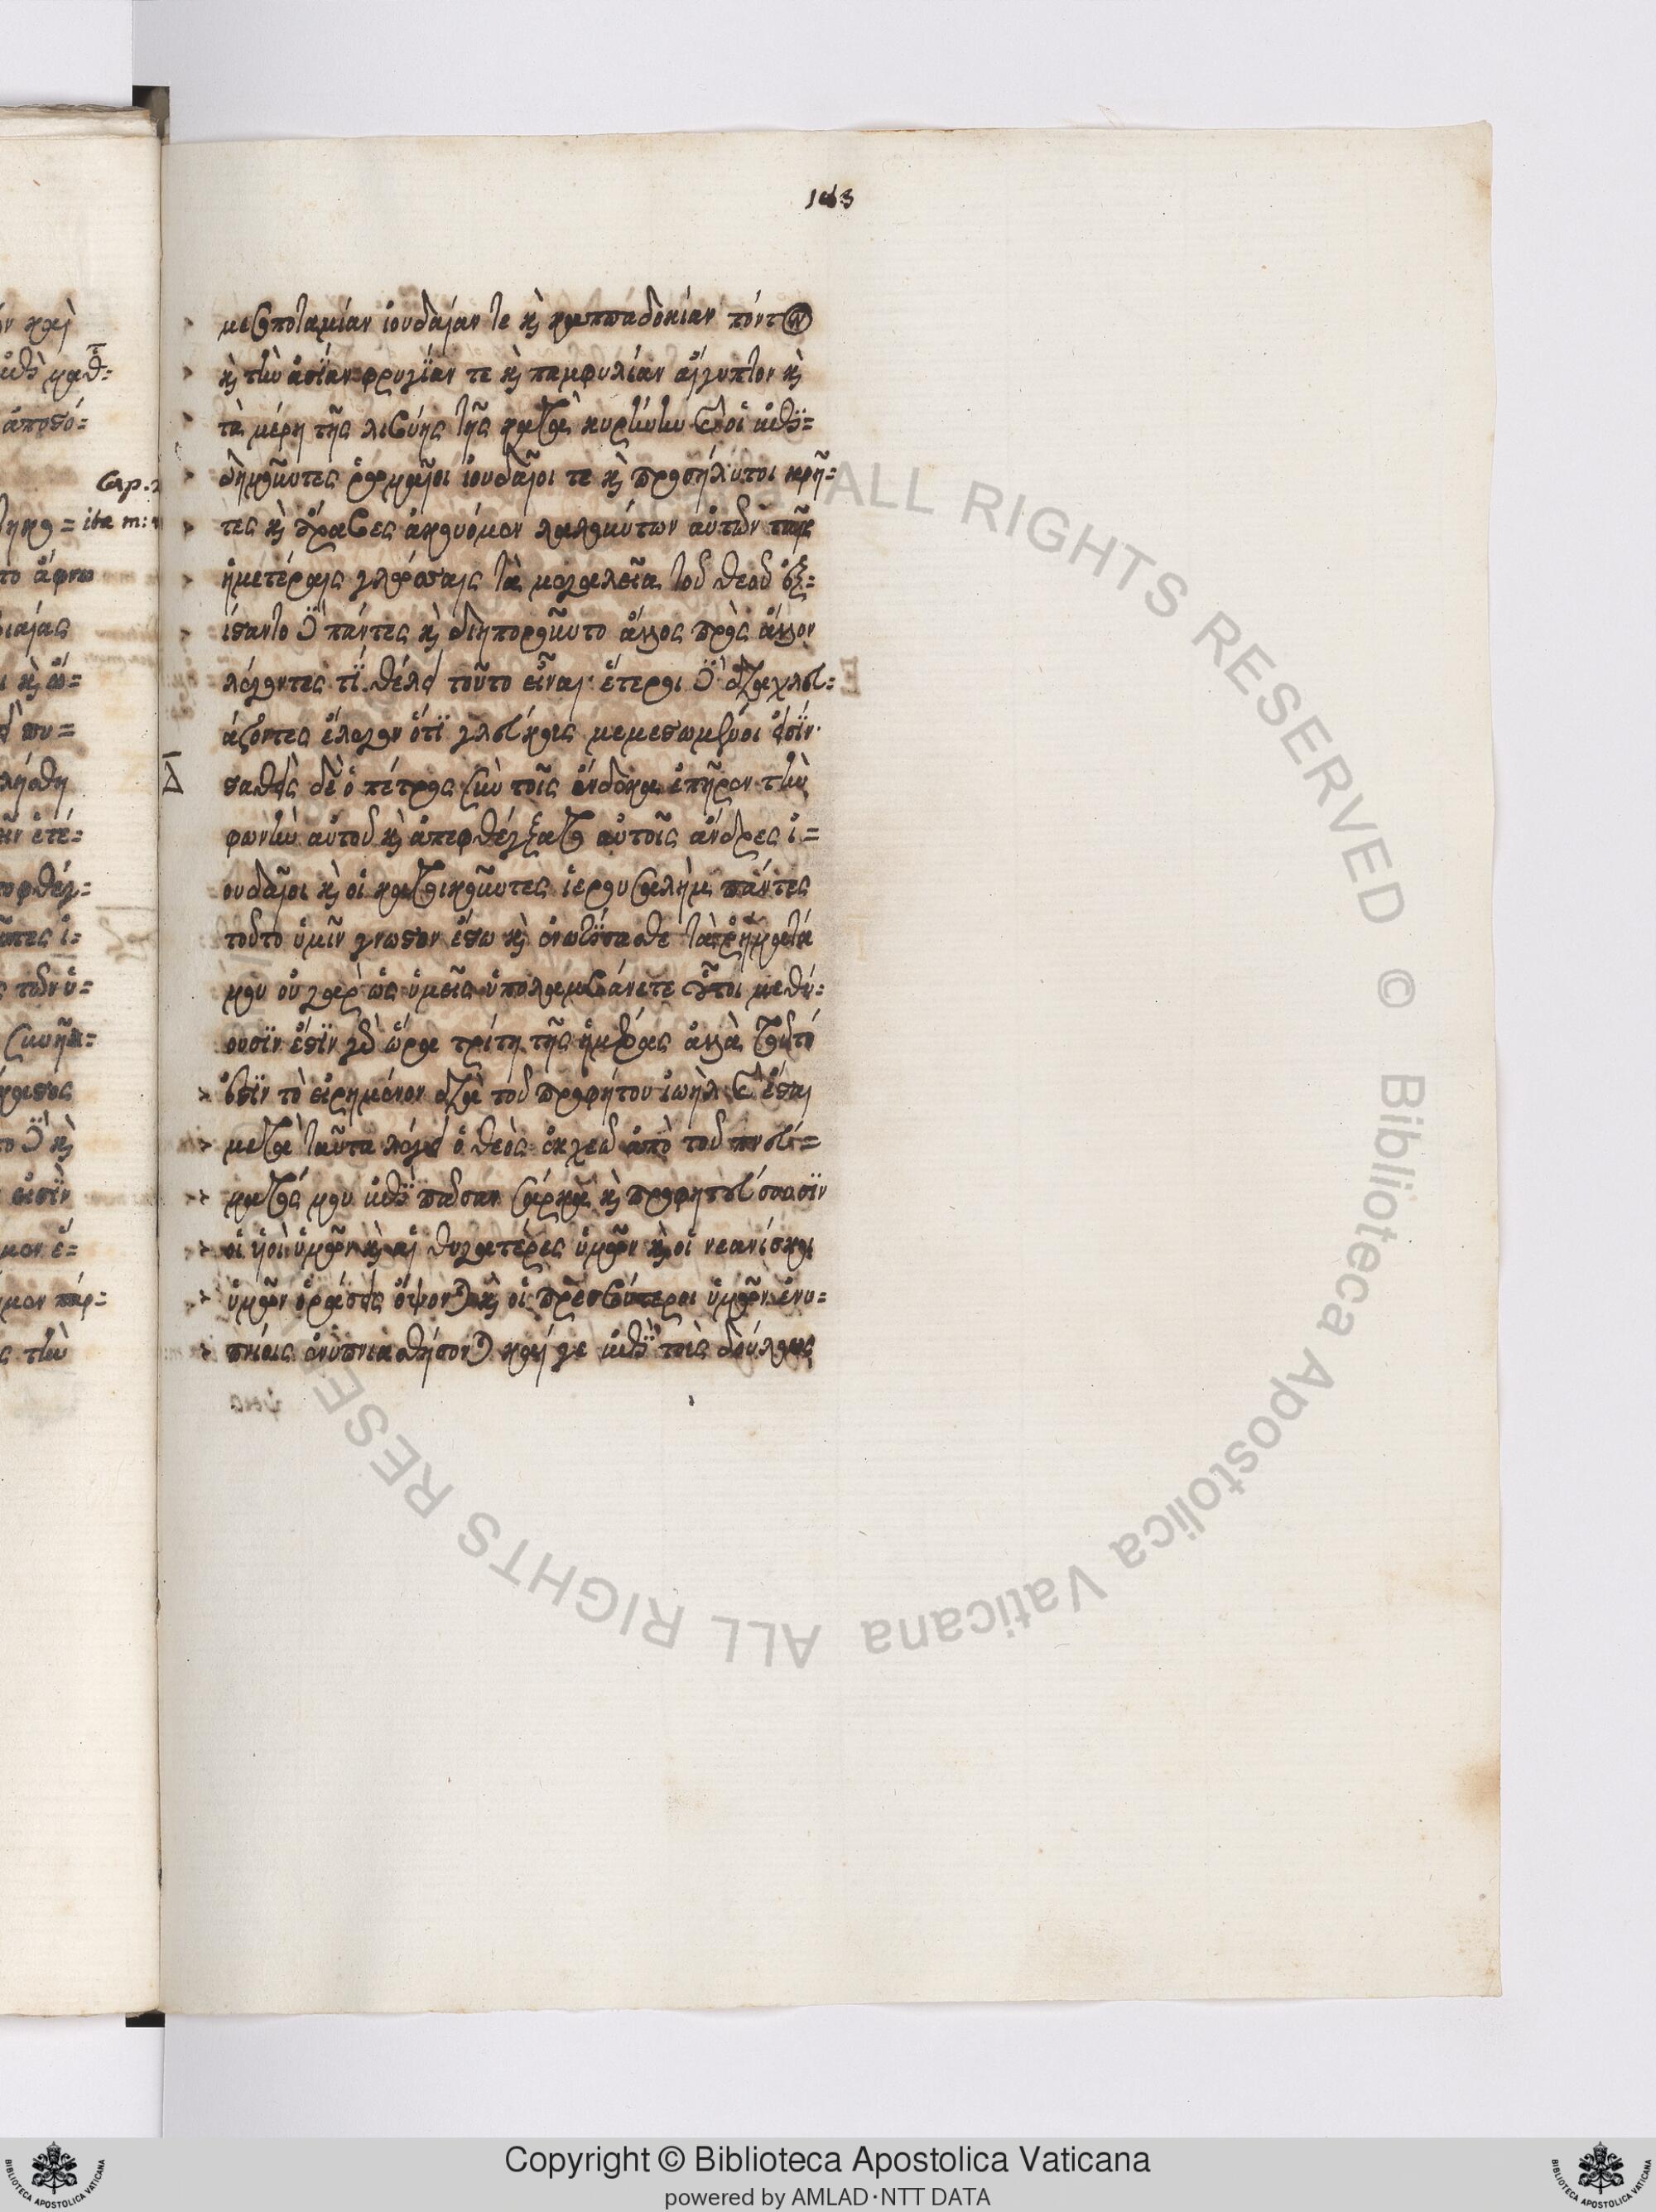 163
μεσοποταμίαν ἰουδαίαν τε κ̀ καππαδοκίαν πόντον
κ̀ τὴν ἀσϊαν φρυγϊαν τε κ̀ παμφυλίαν αἴγυπτον κ̀
τὰ μέρη τῆς λιβύης τῆς κατὰ κυρήνην κ̀ οἱ ἐπϊ=
δημοῦντες ῥωμαῖοι ἰουδαῖοι τε κ̀ προσήλυτοι κρῆ=
τες κ̀ ἄραβες ἀκούομεν λαλούντων αὐτῶν ταῖς
ἡμετέραις γλώσσαις τὰ μεγαλεῖα τοῦ θεοῦ ἐξ=
ίσταντο δὲ πάντες κ̀ διηποροῦντο ἄλλος πρὸς ἄλλον
λέγοντες τϊ θέλει τοῦτο εἶναι· ἕτεροι δὲ διαχλευ=
άζοντες ἔλεγον ὁτϊ γλεύκους μεμεστωμένοι εἰσϊν·
Δ̄ σταθεὶς δὲ ὁ πέτρος σὺν τοῖς ἕνδεκα ἐπῆρεν τὴν
φωνὴν αὐτοῦ κ̀ ἀπεφθέγξατο αὐτοῖς ἄνδρες ἰ=
ουδαῖοι κ̀ οἱ κατοικοῦντες ἱερουσαλὴμ πάντες
τοῦτο ὑμῖν γνωστον ἔστω κ̀ ἐνωτϊσασθε τὰ ῥήματά
μου οὐ γὰρ ὡς ὑμεῖς ὑπολαμβάνετε οὗτοι μεθύ=
ουσϊν ἐστϊν γὰρ ὥρα τρίτη τῆς ἡμέρας ἀλλὰ τοῦτό
ἐστϊν τὸ εἰρημένον διὰ τοῦ προφήτου ἰωὴλ κ̀ ἔσται
μετὰ ταῦτα λέγει ὁ θεὸς ἐκχεῶ ἀπὸ τοῦ πνεύ=
ματός μου ἐπϊ πᾶσαν σάρκα κ̀ προφητεύσουσϊν
οἱ υἱοὶ ὑμῶν κ̀ αἱ θυγατέρες ὑμῶν κ̀ οἱ νεανίσκοι
ὑμῶν ὁράσεις ὄψονται κ̀ οἱ πρεσβύτεροι ὑμῶν ἐνυ=
πνίοις ἐνυπνιασθήσονται καί γε ἐπϊ τοὺς δούλους
Cap. 2
ita m:
ALL RIGHTS RESERVED © Biblioteca Apostolica Vaticana ALL RIGHTS RESE
Copyright © Biblioteca Apostolica Vaticana
powered by AMLAD·NTT DATA
BIBLIOTECA APOSTOLICA VATICANA
BIBLIOTECA APOSTOLICA VATICANA